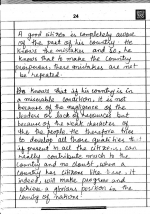 24
A good citizen is completely aware
of the past of his country. He
knows the mistakes and so, he
knows that to make the country
prosperous, these mistakes are not
to be repeated.
He knows that if his country is in
a miserable condition, it is not
because of the negligence of the
leaders or lack of resources but
because of the weak character of
the the people. He therefore tries
to develop all those qualities that
if present in all the citizens can
really contribute much to the
country and no doubt when a
country has citizens like him, it
indeed, will make progress and
achieve a glorious position in the
comity of nations.